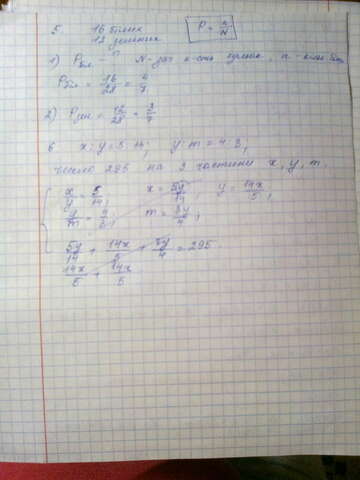 5. 16 білих P = n/N
12 зелених
1) Pбіл = n/N - заг к-сть кульок, n - к-сть біл
Pбіл = 16/28 = 4/7
2) Pзел = 12/28 = 3/7
6 x : y = 5 : 14; y : m = 4 : 3,
число 295 на 3 частини x, y, m.
x/y = 5/14; x = 5y/14 y = 14x/5;
y/m = 4/3; m = 3y/4;
5y/14 + 14x/5 + 3y/4 = 295
14x/5 + 14x/5